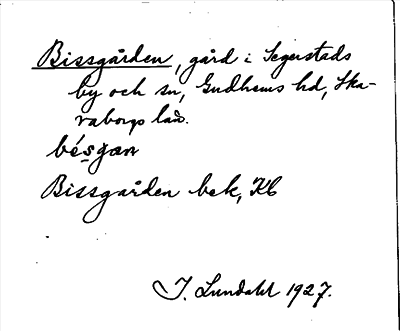 Bissgården, gård i Segerstads
by och sn, Gudhems hd, Ska-
raborgs län.
bésgan
Bissgården bek, Kb
I. Lundahl 1927.